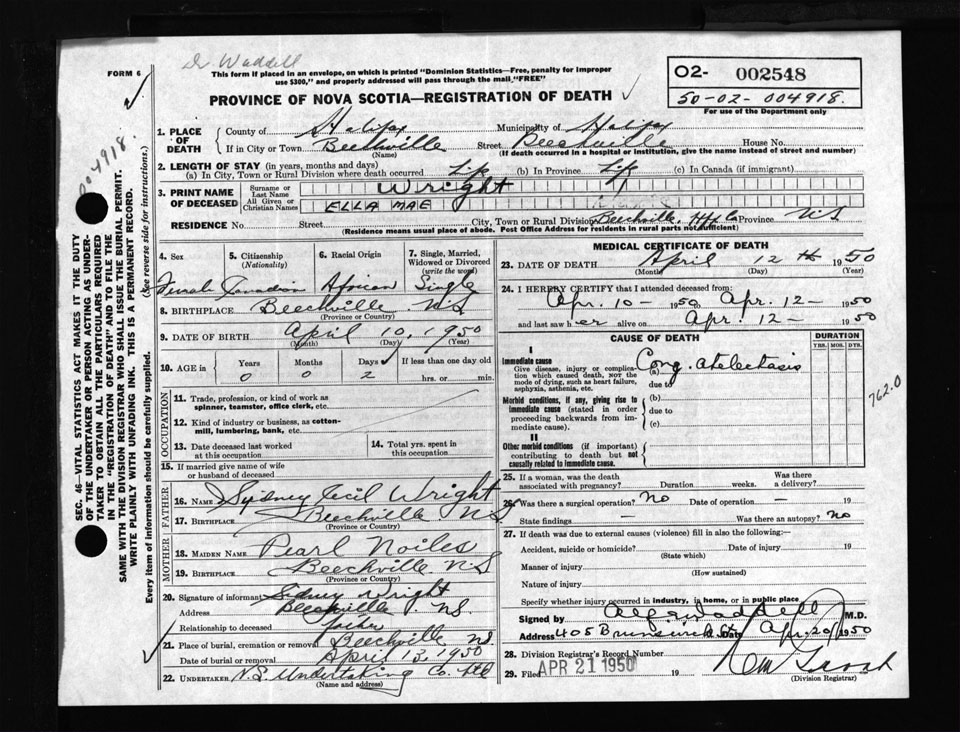 Dr Waddell
FORM 6
This form if placed in an envelope, on which is printed "Dominion Statistics—Free, penalty for improper
use $300," and properly addressed will pass through the mail "FREE"
O2- 002548
50-02-004918.
For use of the Department only
PROVINCE OF NOVA SCOTIA—REGISTRATION OF DEATH
1. PLACE OF DEATH
County of Halifax Municipality of Halifax
If in City or Town Beechville Street Beechville House No.
(Name) (If death occurred in a hospital or institution, give the name instead of street and number)
2. LENGTH OF STAY (in years, months and days)
(a) In City, Town or Rural Division where death occurred Life (b) In Province Life (c) In Canada (if immigrant)
3. PRINT NAME OF DECEASED
Surname or Last Name Wright
All Given or Christian Names ELLA MAE
RESIDENCE No. Street City, Town or Rural Division Beechville, Hfx Co Province N.S
(Residence means usual place of abode. Post Office Address for residents in rural parts not sufficient)
4. Sex 5. Citizenship (Nationality) 6. Racial Origin 7. Single, Married, Widowed or Divorced (write the word)
Female Canadian African Single
8. BIRTHPLACE Beechville N.S
(Province or Country)
9. DATE OF BIRTH April 10, 1950
(Month) (Day) (Year)
10. AGE in Years Months Days If less than one day old
0 0 2 hrs. or min.
OCCUPATION
11. Trade, profession, or kind of work as
spinner, teamster, office clerk, etc.
12. Kind of industry or business, as cotton-
mill, lumbering, bank, etc.
13. Date deceased last worked
at this occupation
14. Total yrs. spent in
this occupation
15. If married give name of wife
or husband of deceased
FATHER
16. NAME Sydney Cecil Wright
17. Birthplace Beechville N.S
(Province or Country)
MOTHER
18. MAIDEN NAME Pearl Noiles
19. BIRTHPLACE Beechville N.S
(Province or Country)
20. Signature of informant Sidney Wright
Address Beechville N.S.
Relationship to deceased father
21. Place of burial, cremation or removal Beechville N.S.
Date of burial or removal April 13, 1950
22. UNDERTAKER N.S. Undertaking Co. Ltd
(Name and address)
MEDICAL CERTIFICATE OF DEATH
23. DATE OF DEATH April 12th 1950
(Month) (Day) (Year)
24. I HEREBY CERTIFY that I attended deceased from:
Apr. 10— 1950 to Apr. 12— 1950
and last saw her alive on Apr. 12— 1950
CAUSE OF DEATH
DURATION
YRS. MOS. DYS.
I
Immediate cause
Give disease, injury or complica-
tion which caused death, NOT the
mode of dying, such as heart failure,
asphyxia, asthenia, etc.
(a) Cong. atelectasis
due to
762.0
Morbid conditions, if any, giving rise to
immediate cause (stated in order
proceeding backwards from im-
mediate cause).
(b)
due to
(c)
II
Other morbid conditions (if important)
contributing to death but not
causally related to immediate cause.
25. If a woman, was the death
associated with pregnancy? Duration weeks. Was there a delivery?
26. Was there a surgical operation? No Date of operation — 19
State findings — Was there an autopsy? no
27. If death was due to external causes (violence) fill in also the following:—
Accident, suicide or homicide? Date of injury 19
(State which)
Manner of injury
(How sustained)
Nature of injury
Specify whether injury occurred in industry, in home, or in public place
Signed by Waddell M.D.
Address 405 Brunswick St Date Apr. 20/1950
28. Division Registrar's Record Number
29. Filed APR 21 1950 19
(Division Registrar)
004918.
SEC. 46—VITAL STATISTICS ACT MAKES IT THE DUTY
OF THE UNDERTAKER OR PERSON ACTING AS UNDER-
TAKER TO OBTAIN ALL THE PARTICULARS REQUIRED
IN THE "REGISTRATION OF DEATH" AND TO FILE THE
SAME WITH THE DIVISION REGISTRAR WHO SHALL ISSUE THE BURIAL PERMIT.
WRITE PLAINLY WITH UNFADING INK. THIS IS A PERMANENT RECORD.
Every item of information should be carefully supplied. (See reverse side for instructions.)